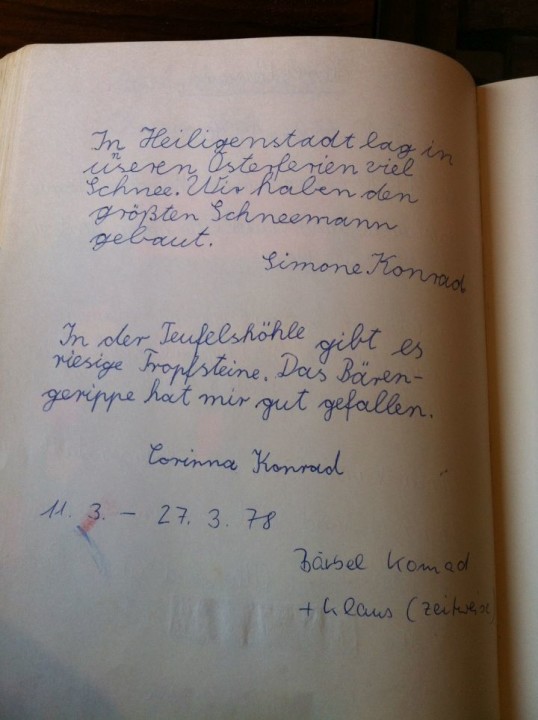 In Heiligenstadt lag in
unseren Osterferien viel
Schnee. Wir haben den
größten Schneemann
gebaut.
Simone Konrad
In der Teufelshöhle gibt es
riesige Tropfsteine. Das Bären-
gerippe hat mir gut gefallen.
Corinna Konrad
11. 3. – 27. 3. 78
Bärbel Konrad
+ Klaus (zeitweise